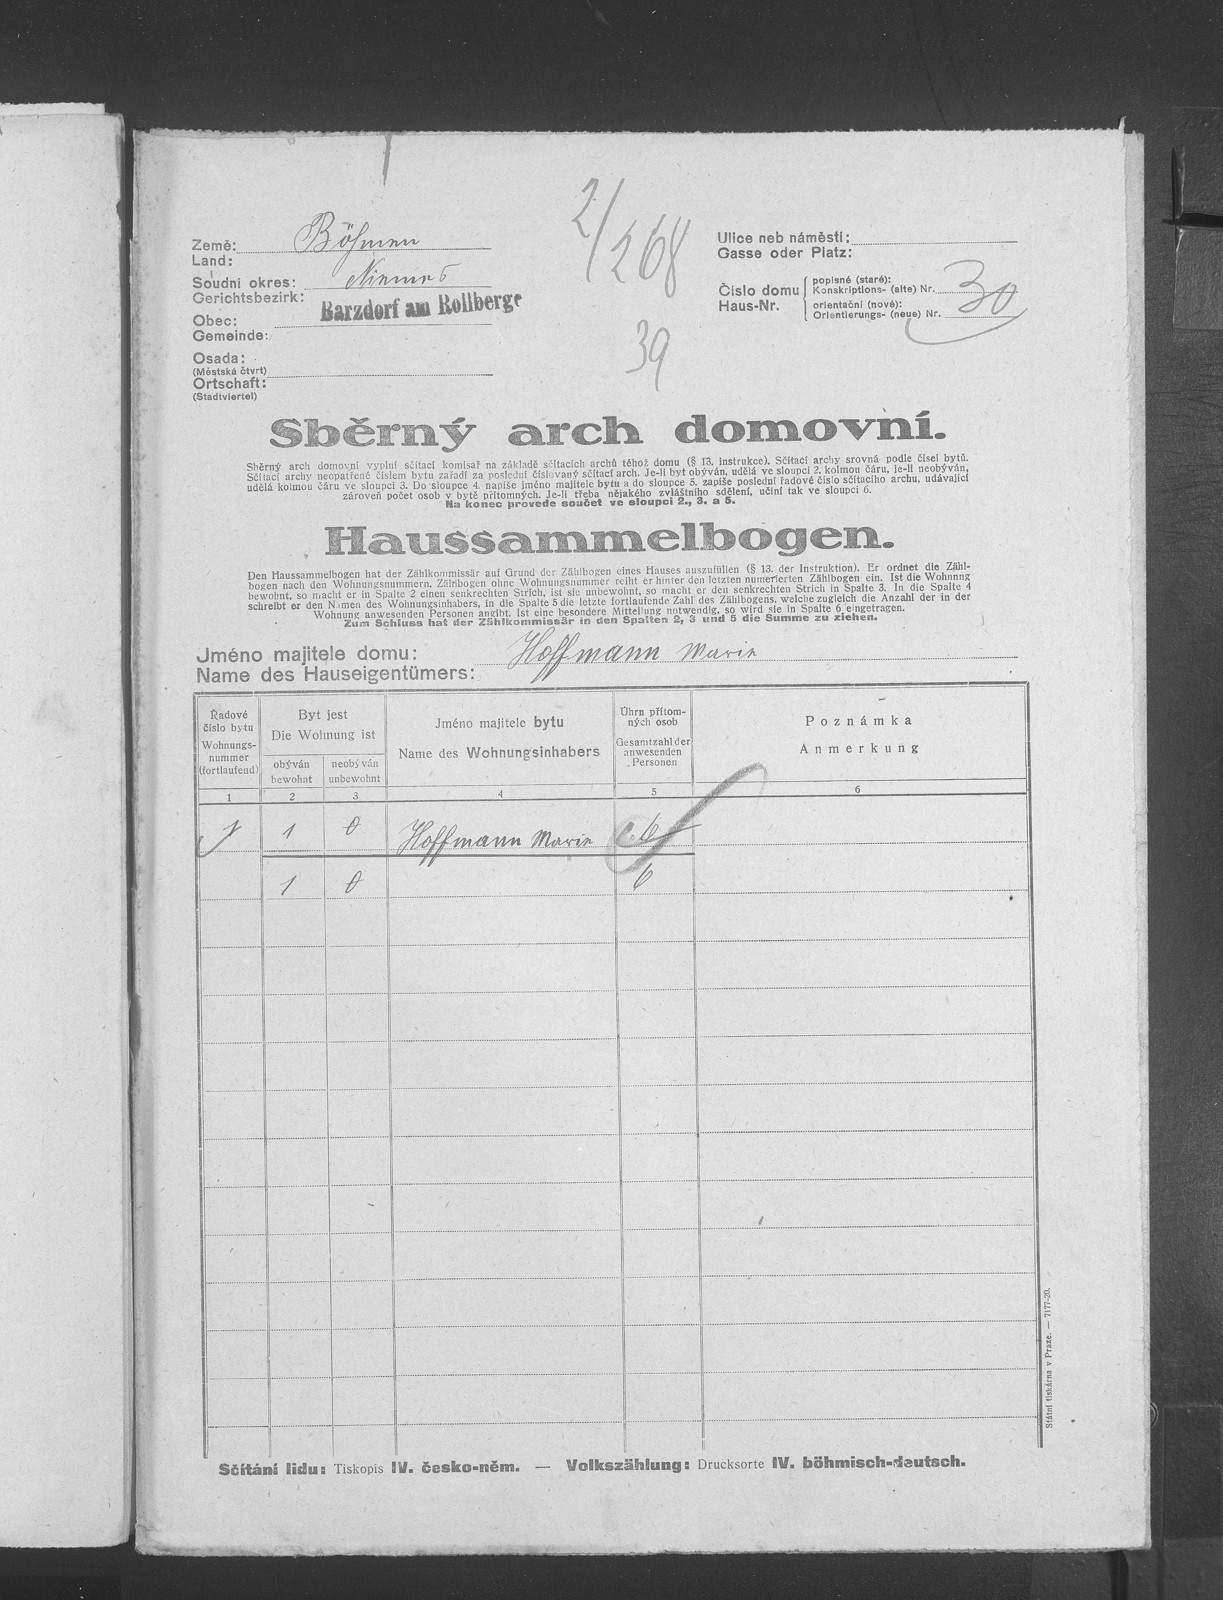 2/268
39
Země: Böhmen
Land:
Soudní okres: Niemes
Gerichtsbezirk:
Barzdorf am Rollberge
Obec:
Gemeinde:
Osada:
(Městská čtvrt)
Ortschaft:
(Stadtviertel)
Ulice neb náměstí:
Gasse oder Platz:
Číslo domu
Haus-Nr.
popisné (staré):
Konskriptions- (alte) Nr. 30
orientační (nové):
Orientierungs- (neue) Nr.
Sběrný arch domovní.
Sběrný arch domovní vyplní sčítací komisař na základě sčítacích archů téhož domu (§ 13. instrukce). Sčítací archy srovná podle čísel bytů.
Sčítací archy neopatřené číslem bytu zařadí za poslední číslovaný sčítací arch. Je-li byt obýván, udělá ve sloupci 2. kolmou čáru, je-li neobýván,
udělá kolmou čáru ve sloupci 3. Do sloupce 4. napíše jméno majitele bytu a do sloupce 5. zapíše poslední řadové číslo sčítacího archu, udávající
zároveň počet osob v bytě přítomných. Je-li třeba nějakého zvláštního sdělení, učiní tak ve sloupci 6.
Na konec provede součet ve sloupci 2., 3. a 5.
Haussammelbogen.
Den Haussammelbogen hat der Zählkommissär auf Grund der Zählbogen eines Hauses auszufüllen (§ 13. der Instruktion). Er ordnet die Zähl-
bogen nach den Wohnungsnummern. Zählbogen ohne Wohnungsnummer reiht er hinter den letzten numerierten Zählbogen ein. Ist die Wohnnng
bewohnt, so macht er in Spalte 2 einen senkrechten Strich, ist sie unbewohnt, so macht er den senkrechten Strich in Spalte 3. In die Spalte 4
schreibt er den Namen des Wohnungsinhabers, in die Spalte 5 die letzte fortlaufende Zahl des Zählbogens, welche zugleich die Anzahl der in der
Wohnung anwesenden Personen angibt. Ist eine besondere Mitteilung notwendig, so wird sie in Spalte 6 eingetragen.
Zum Schluss hat der Zählkommissär in den Spalten 2, 3 und 5 die Summe zu ziehen.
Jméno majitele domu: Hoffmann Marie
Name des Hauseigentümers:
Řadové
číslo bytu
Wohnungs-
nummer
(fortlaufend)
Byt jest
Die Wohnung ist
obýván
bewohnt
neobýván
unbewohnt
Jméno majitele bytu
Name des Wohnungsinhabers
Úhrn přítom-
ných osob
Gesamtzahl der
anwesenden
Personen
Poznámka
Anmerkung
1 2 3 4 5 6
1 1 0 Hoffmann Marie 6
1 0 6
Sčítání lidu: Tiskopis IV. česko-něm. — Volkszählung: Drucksorte IV. böhmisch-deutsch.
Státní tiskárna v Praze. — 7177-20.